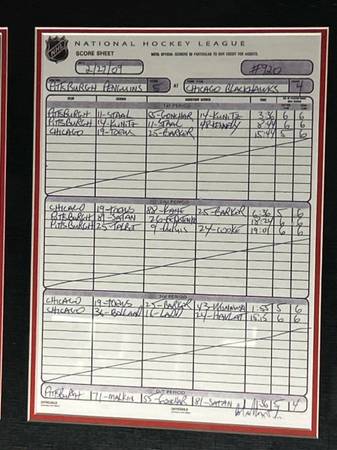 NATIONAL HOCKEY LEAGUE
SCORE SHEET
2/27/09 #920
PITTSBURGH PENGUINS 5 AT CHICAGO BLACKHAWKS 4
1st PERIOD
PITTSBURGH 11-STAAL 55-GONCHAR 14-KUNITZ 3:36 6 6
PITTSBURGH 14-KUNITZ 11-STAAL 48-KENNEDY 8:44 6 6
CHICAGO 19-TOEWS 25-BARKER 15:44 5
PERIOD
CHICAGO 19-TOEWS 88-KANE 25-BARKER 6:36 5 6
PITTSBURGH 81-SATAN 26-FEDOTENKO 6
PITTSBURGH 25-TALBOT 9-DUPUIS 24-COOKE 19:01 6 6
PERIOD
CHICAGO 19-TOEWS 25-BARKER 1:55 5 6
CHICAGO 36-BOLLAND 16-LADD 24-HAVLAT 6 6
O.T. PERIOD
PITTSBURGH 71-MALKIN 55-GONCHAR 81-SATAN 5 4